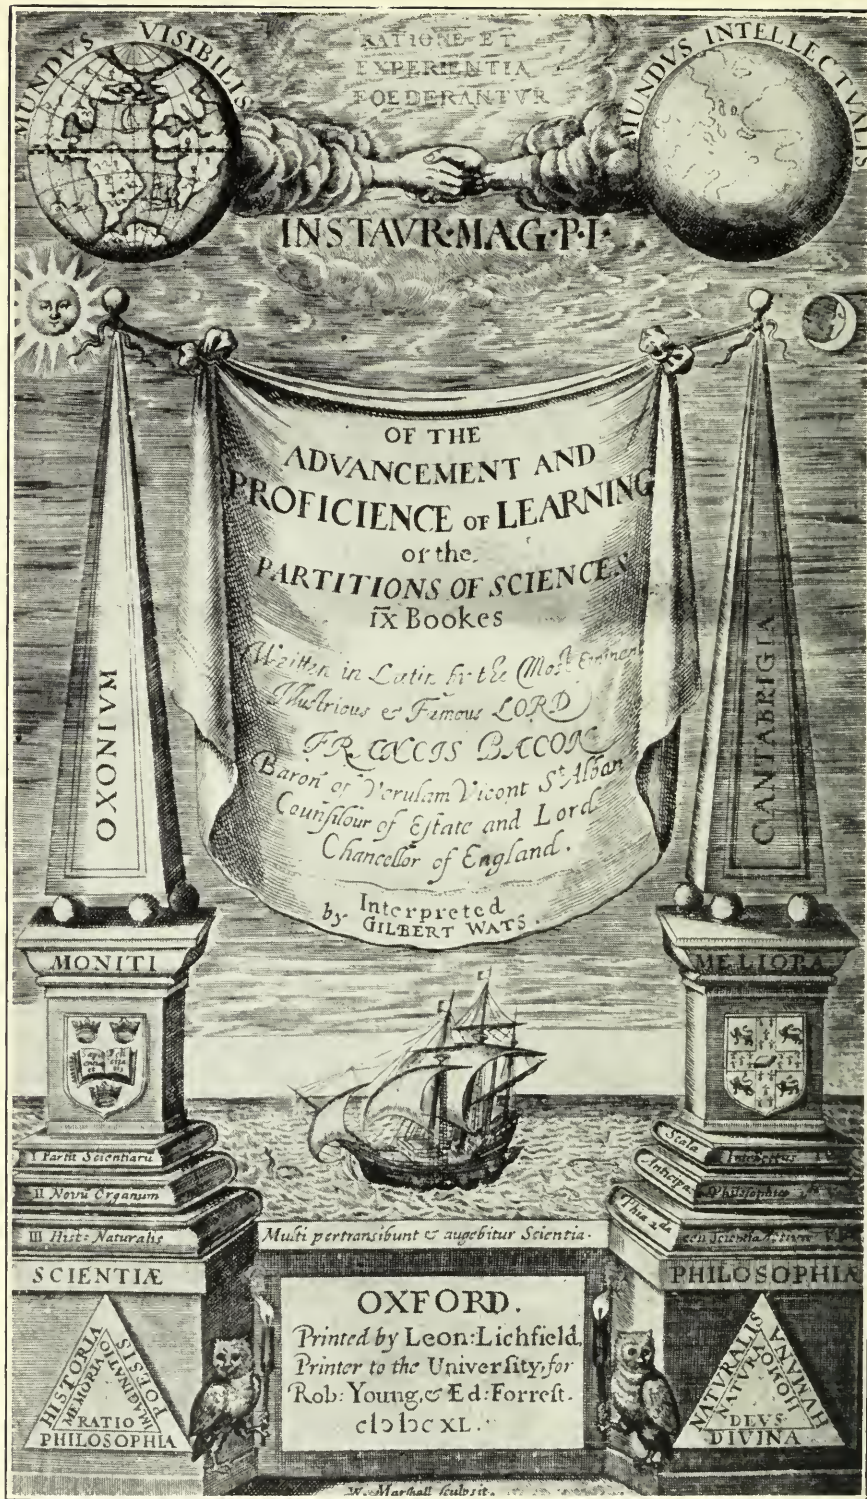 MUNDVS VISIBILIS
RATIONE ET
EXPERIENTIA
FOEDERANTVR
MUNDVS INTELLECTVALIS
INSTAVR·MAG·P·I·
OF THE
ADVANCEMENT AND
PROFICIENCE OF LEARNING
or the
PARTITIONS OF SCIENCES
IX Bookes
Written in Latin by the Most Eminent
Illustrious & Famous LORD
FRANCIS BACON
Baron of Verulam Vicont St Alban
Counsilour of Estate and Lord
Chancellor of England.
Interpreted
by GILBERT WATS.
OXONIVM
CANTABRIGIA
MONITI
MELIORA
I Partit Scientiarū
II Novū Organum
III Hist: Naturalis
Scala Intellectus
Anticipa: Philosophiæ
Phia 2da
SCIENTIÆ
PHILOSOPHIA
Multi pertransibunt & augebitur Scientia.
HISTORIA
MEMORIA
POESIS
IMAGINATIO
RATIO
PHILOSOPHIA
OXFORD.
Printed by Leon: Lichfield,
Printer to the Univerſity, for
Rob: Young, & Ed: Forreſt.
cIↄ Iↄc XL.
NATVRALIS
NATVRA
HUMANA
HOMO
DEVS
DIVINA
W. Marshall sculpsit.